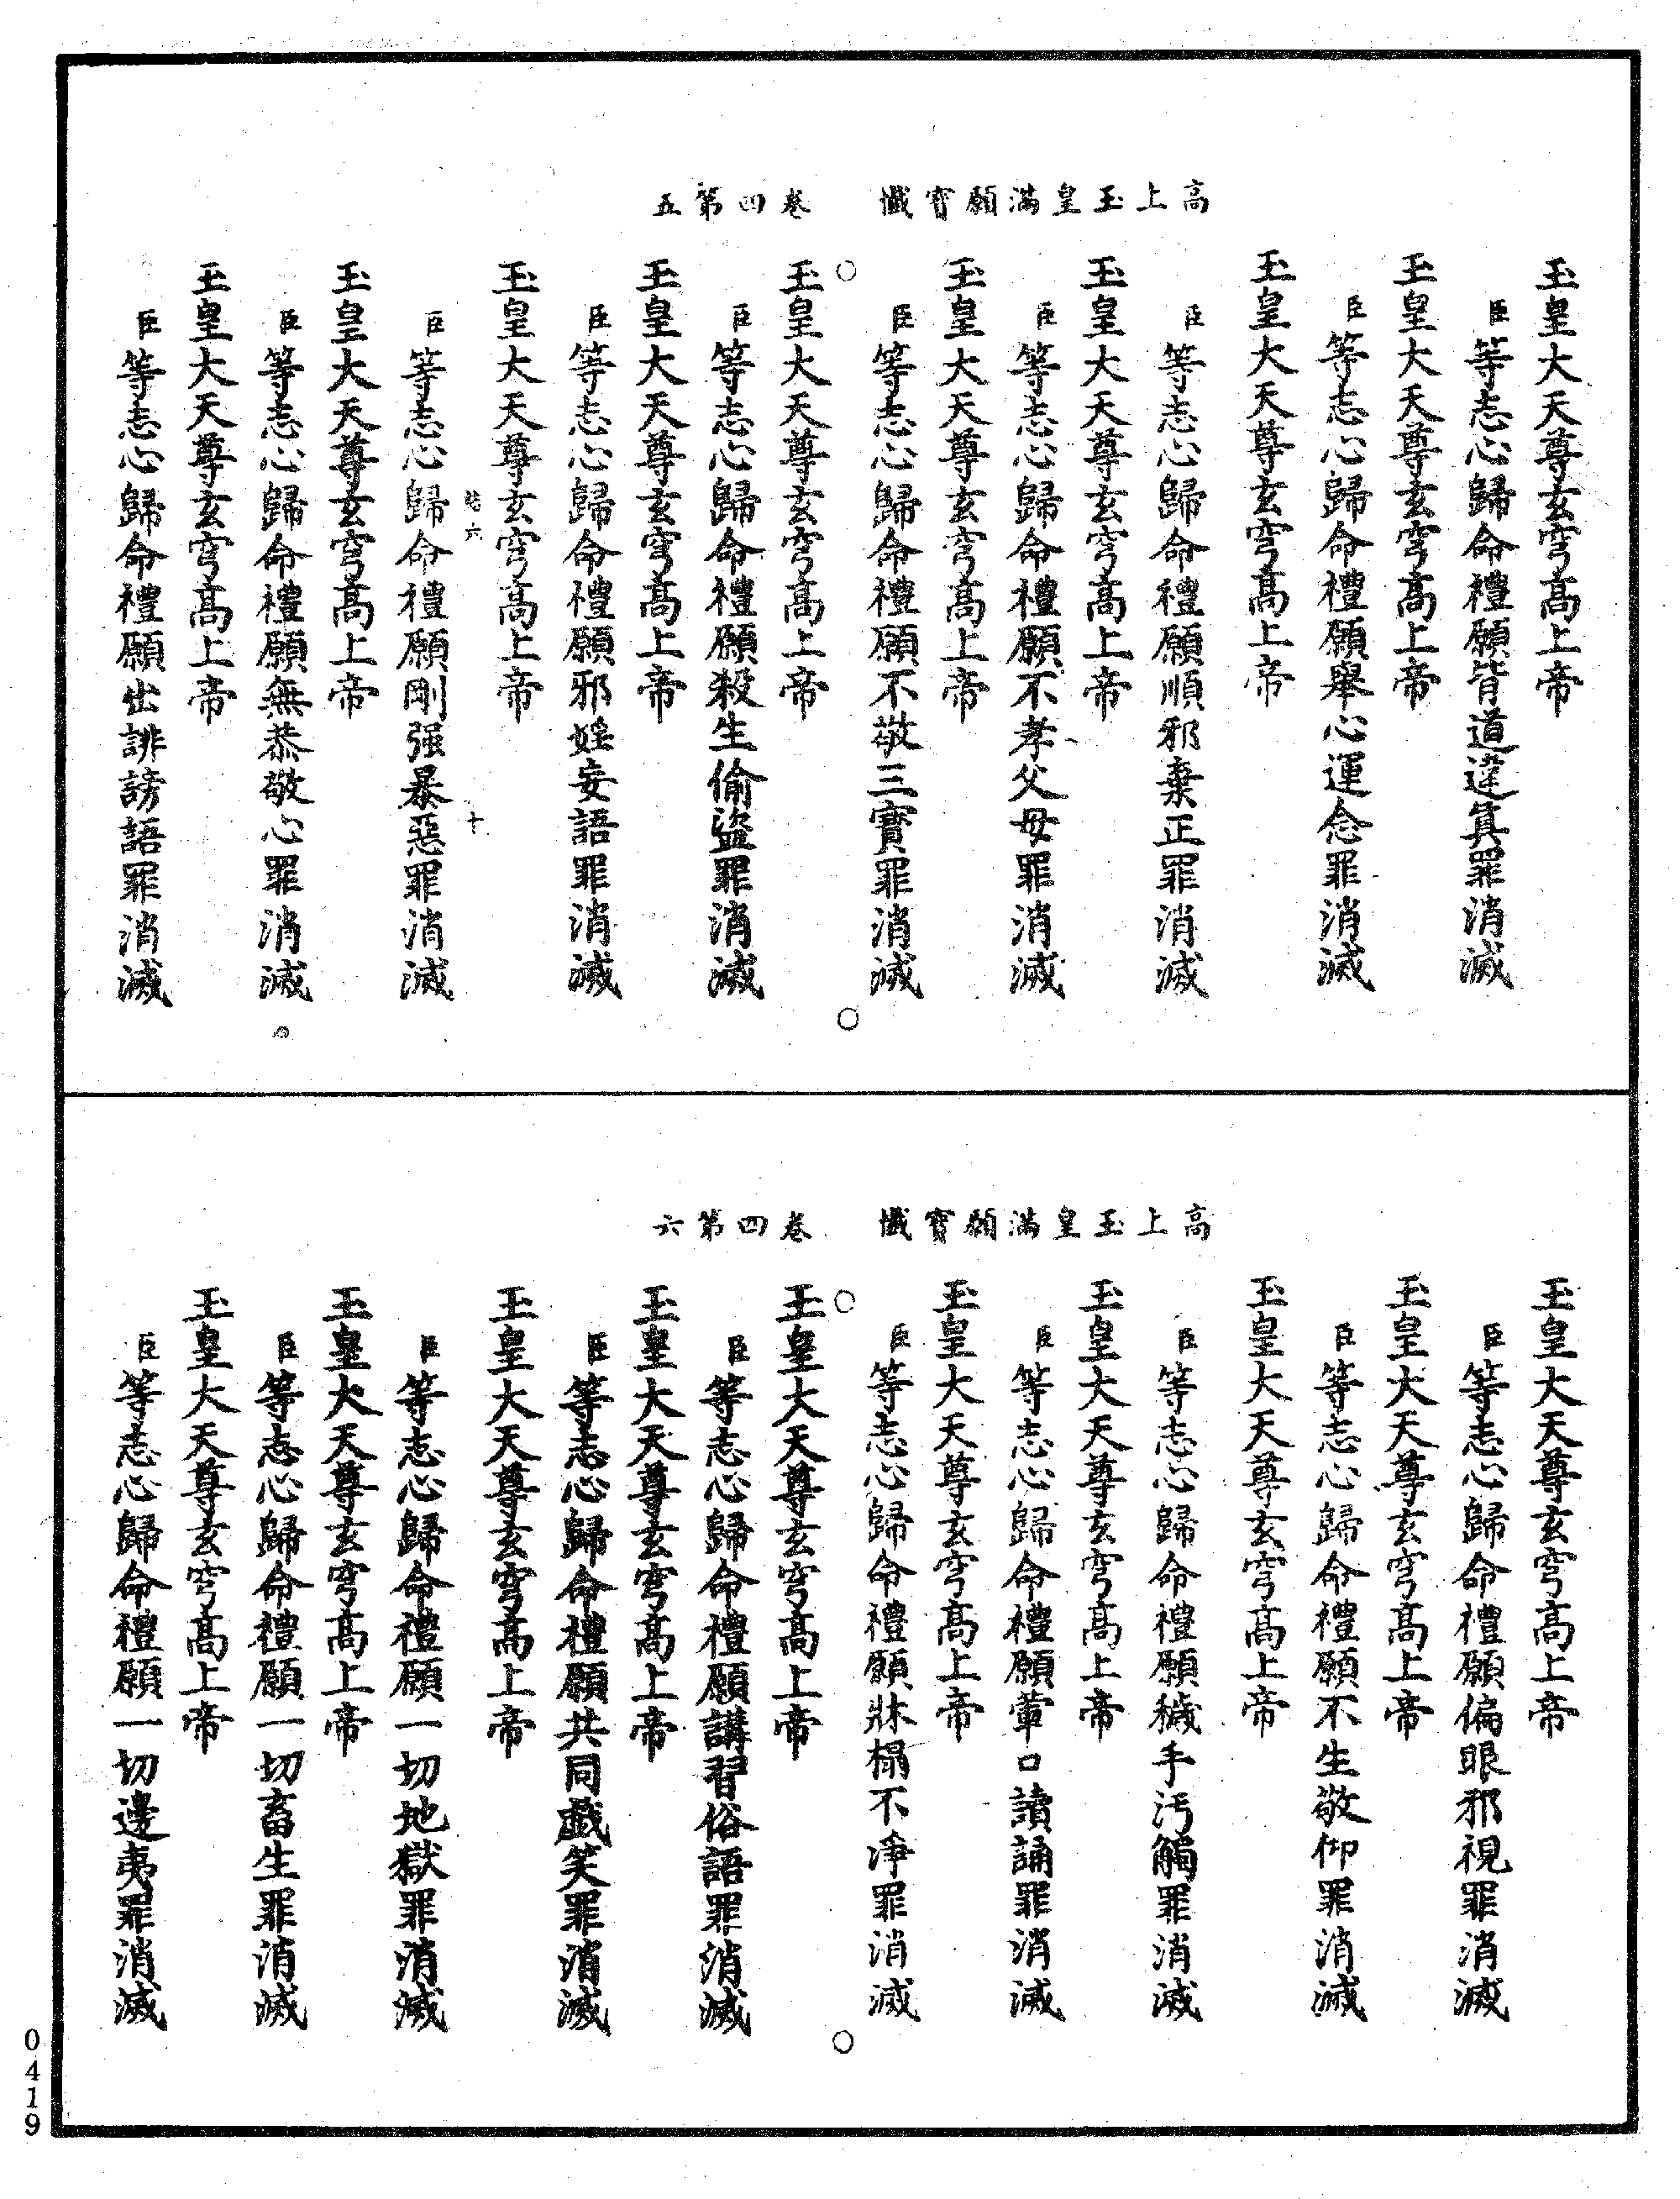 高上玉皇滿願寶懺 卷四第五
玉皇大天尊玄穹高上帝
臣等志心歸命禮願背道違眞罪消滅
玉皇大天尊玄穹高上帝
臣等志心歸命禮願舉心運念罪消滅
玉皇大天尊玄穹高上帝
臣等志心歸命禮願順邪棄正罪消滅
玉皇大天尊玄穹高上帝
臣等志心歸命禮願不孝父母罪消滅
玉皇大天尊玄穹高上帝
臣等志心歸命禮願不敬三寶罪消滅
玉皇大天尊玄穹高上帝
臣等志心歸命禮願殺生偷盜罪消滅
玉皇大天尊玄穹高上帝
臣等志心歸命禮願邪婬妄語罪消滅
玉皇大天尊玄穹高上帝
六 十
臣等志心歸命禮願剛强暴惡罪消滅
玉皇大天尊玄穹高上帝
臣等志心歸命禮願無恭敬心罪消滅
玉皇大天尊玄穹高上帝
臣等志心歸命禮願出誹謗語罪消滅
高上玉皇滿願寶懺 卷四第六
玉皇大天尊玄穹高上帝
臣等志心歸命禮願偏眼邪視罪消滅
玉皇大天尊玄穹高上帝
臣等志心歸命禮願不生敬仰罪消滅
玉皇大天尊玄穹高上帝
臣等志心歸命禮願穢手汚觸罪消滅
玉皇大天尊玄穹高上帝
臣等志心歸命禮願葷口讀誦罪消滅
玉皇大天尊玄穹高上帝
臣等志心歸命禮願牀榻不淨罪消滅
玉皇大天尊玄穹高上帝
臣等志心歸命禮願講習俗語罪消滅
玉皇大天尊玄穹高上帝
臣等志心歸命禮願共同戲笑罪消滅
玉皇大天尊玄穹高上帝
臣等志心歸命禮願一切地獄罪消滅
玉皇大天尊玄穹高上帝
臣等志心歸命禮願一切畜生罪消滅
玉皇大天尊玄穹高上帝
臣等志心歸命禮願一切邊夷罪消滅
0419